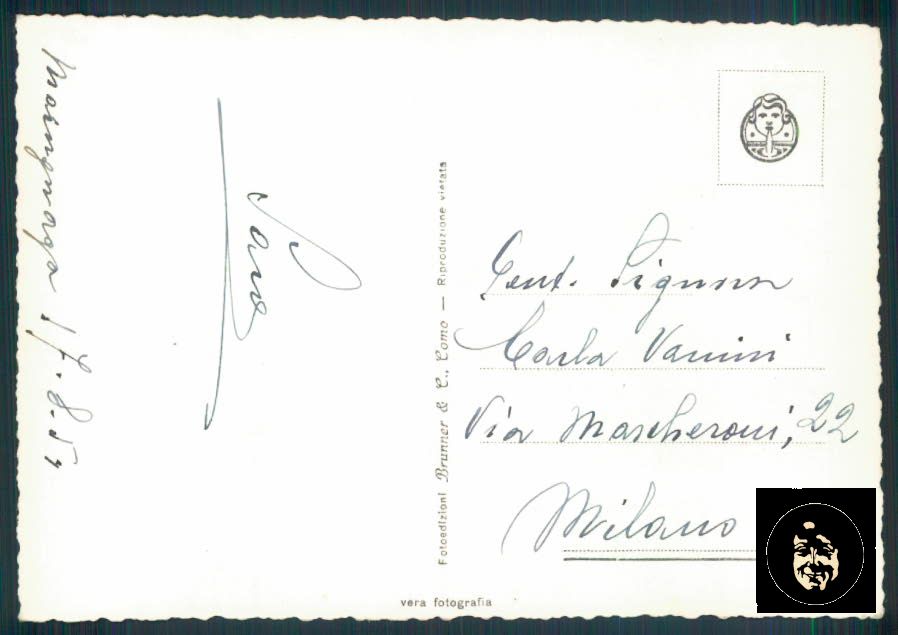 17.8.54
Fotoedizioni Brunner & C., Como — Riproduzione vietata
Gent. Signora
Carla Vannini
Via Mascheroni, 22
Milano
vera fotografia